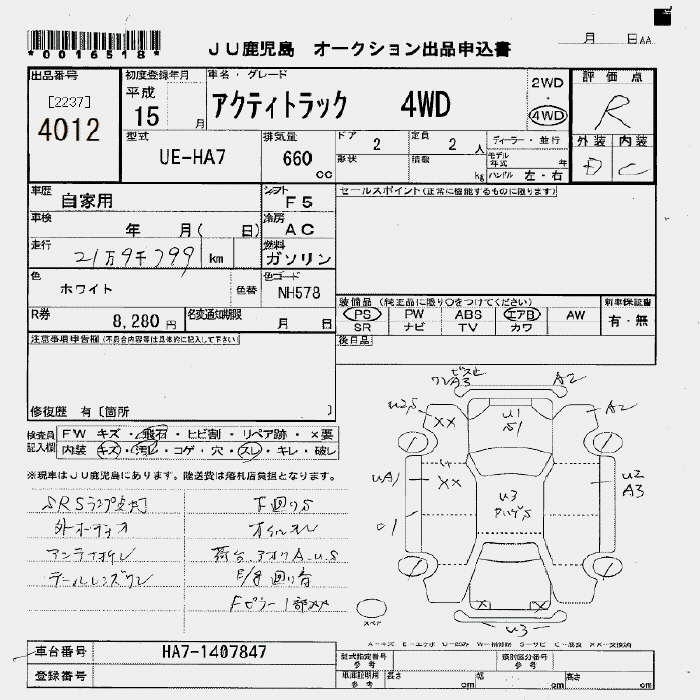 *0016518*
月 日AA
JU鹿児島 オークション出品申込書
出品番号 初度登録年月 車名・グレード 評価点
[2237] 平成 2WD
4012 15月 アクティトラック 4WD 4WD R
型式 排気量 ドア 定員 ディーラー・並行 外装 内装
UE-HA7 660cc 2 2人 モデル年式 年 D C
形状 積載 kg ハンドル 左・右
車歴 シフト セールスポイント(正常に機能するものに限ります)
自家用 F5
車検 年 月( 日) 冷房 AC
走行 21万9千799 km 燃料 ガソリン
色 色コード
ホワイト 色替 NH578
装備品(純正品に限り○をつけてください) 新車保証書
R券 8,280円 名変通知期限 月 日
PS PW ABS エアB AW 有・無
SR ナビ TV カワ
注意事項申告欄(不具合内容等は具体的に記入して下さい) 後日品
修復歴 有〔箇所 〕
検査員記入欄 FW キズ・飛石・ヒビ割・リペア跡・×要
内装 キズ・汚れ・コゲ・穴・スレ・キレ・破レ
※現車はJU鹿児島にあります。陸送費は落札店負担となります。
ワレA3 A2
U2,5 XX U1 S1 A2
UA1 XX U3 U2 A3
X X
U3
SRSランプ点灯 下回りS
外オーディオ オイルモレ
アンテナオレ 荷台、アオリA.U.S
テールレンズワレ
スペア
A=キズ E=エクボ U=凹み W=補修跡 S=サビ C=腐食 XX=交換済
車台番号 HA7-1407847
型式指定番号 参考 類別区分番号 参考
登録番号
車庫証明用 参考 長さ cm 幅 cm 高さ cm